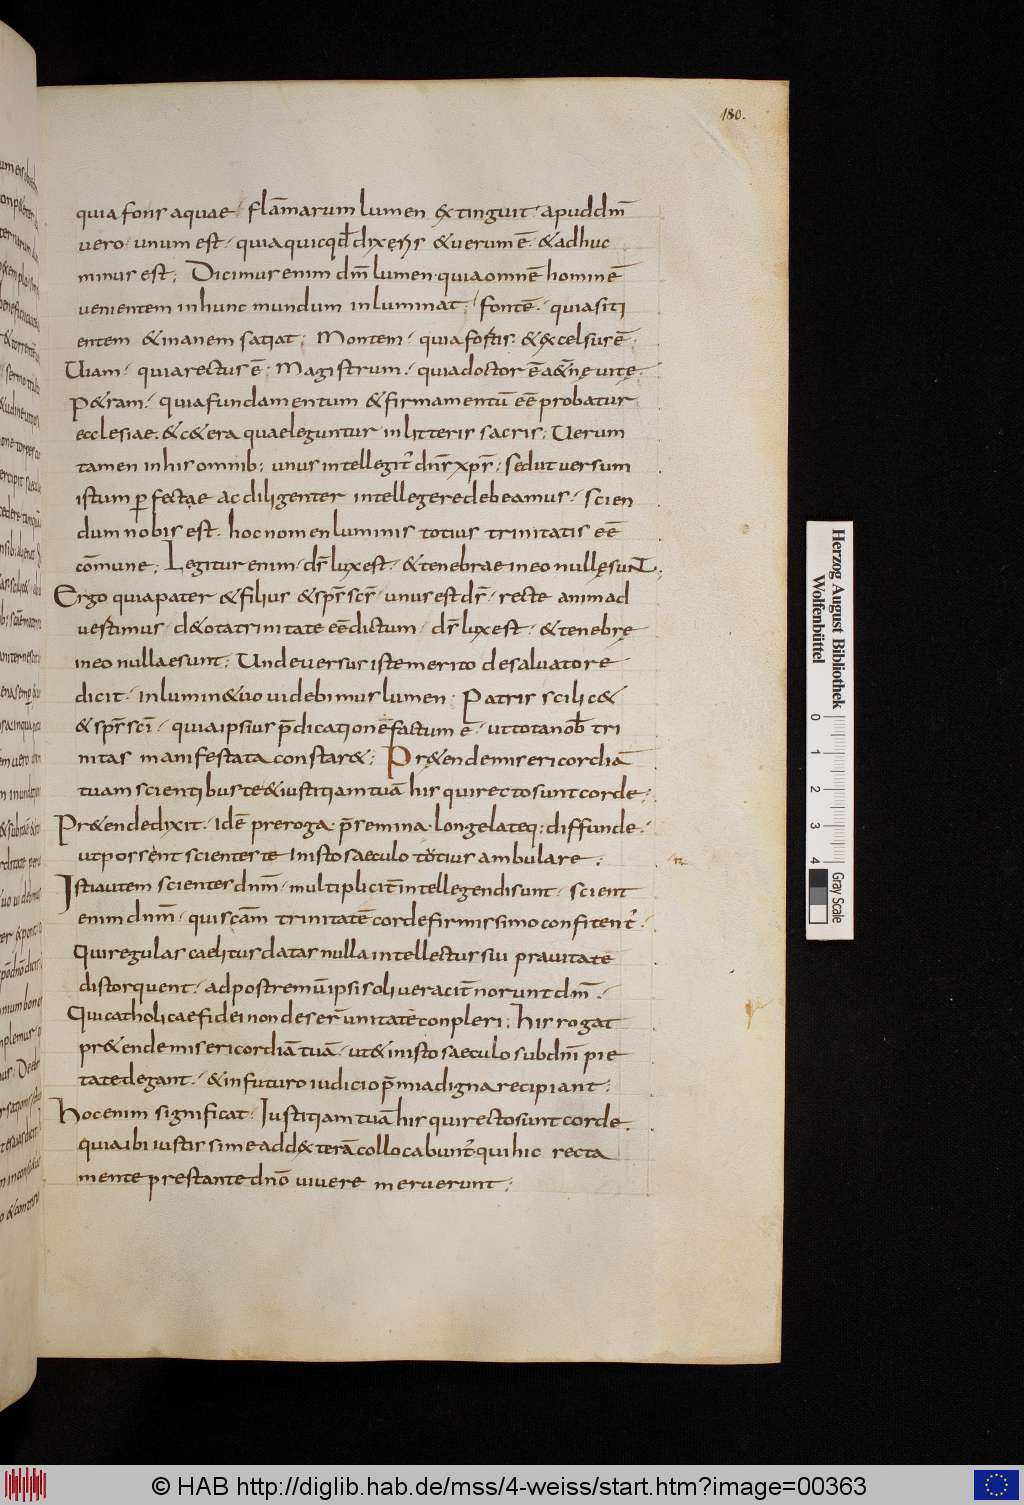 180.
quia fons aquae · flāmarum lumen extinguit · apud dm̄
vero · unum est · quia quicqd̄ dixeris & verum ē · & adhuc
minus est; Dicimus enim dm̄ lumen · quia omnē hominē
venientem in hunc mundum inluminat; fontē · quia siti
entem & inanem satiat; Montem · quia fortis · & excelsus ē;
Uiam · quia rectus ē; Magistrum · quia doctor ē a&nę vitę ·
P&ram · quia fundamentum & firmamentū eē probatur
ecclesiae · & c&era quae leguntur in litteris sacris; Uerum
tamen in his omnib; unus intellegit̄ dn̄s xp̄s; sed ut versum
istum p̱fectae ac diligenter intellegere debeamus · scien
dum nobis est · hoc nomen luminis totius trinitatis eē
cōmune; Legitur enim · ds̄ lux est · & tenebrae in eo nullę sunt;
Ergo quia pater & filius & sps̄ scs̄ · unus est ds̄ · recte animad
vestimus · d& ota trinitate eē dictum · ds̄ lux est · & tenebrę
in eo nullae sunt; Unde versus iste merito de salvatore
dicit · in lumin& uo videbimus lumen; Patris scilic&
& sps̄ scī · quia ipsius p̄dicationē factum ē · ut tota nob̄ tri
nitas manifestata constar&; Pr&ende misericordiā
tuam scientibus te & iustitiam tuā his qui recto sunt corde;
Pr&ende dixit · Idē preroga · p̄semina · longe lateq; diffunde ·
ut possent scientes te in isto saeculo totius ambulare;
Isti autem scientes dnm̄ · multiplicit̄ intellegendi sunt · scient
enim dnm̄ · qui scām trinitatē corde firmissimo confitent̄ ·
Qui regulas caelitus datas nulla intellectus sui pravitate
distorquent · ad postremū ipsi soli veracit̄ norunt dm̄ ·
Qui catholicae fidei non deser̄ unitatē conpleri; his rogat
pr&ende misericordiā tuā · ut & in isto saeculo sub dnī pie
tate degant · & in futuro iudicio p̄mia digna recipiant;
Hoc enim significat · Iustitiam tuā his qui recto sunt corde ·
quia ibi iustis sime ad dexterā collocabunt̄ qui hic recta
mente prestante dnō vivere meruerunt;
Herzog August Bibliothek
Wolfenbüttel
0 1 2 3 4
Gray Scale
© HAB http://diglib.hab.de/mss/4-weiss/start.htm?image=00363